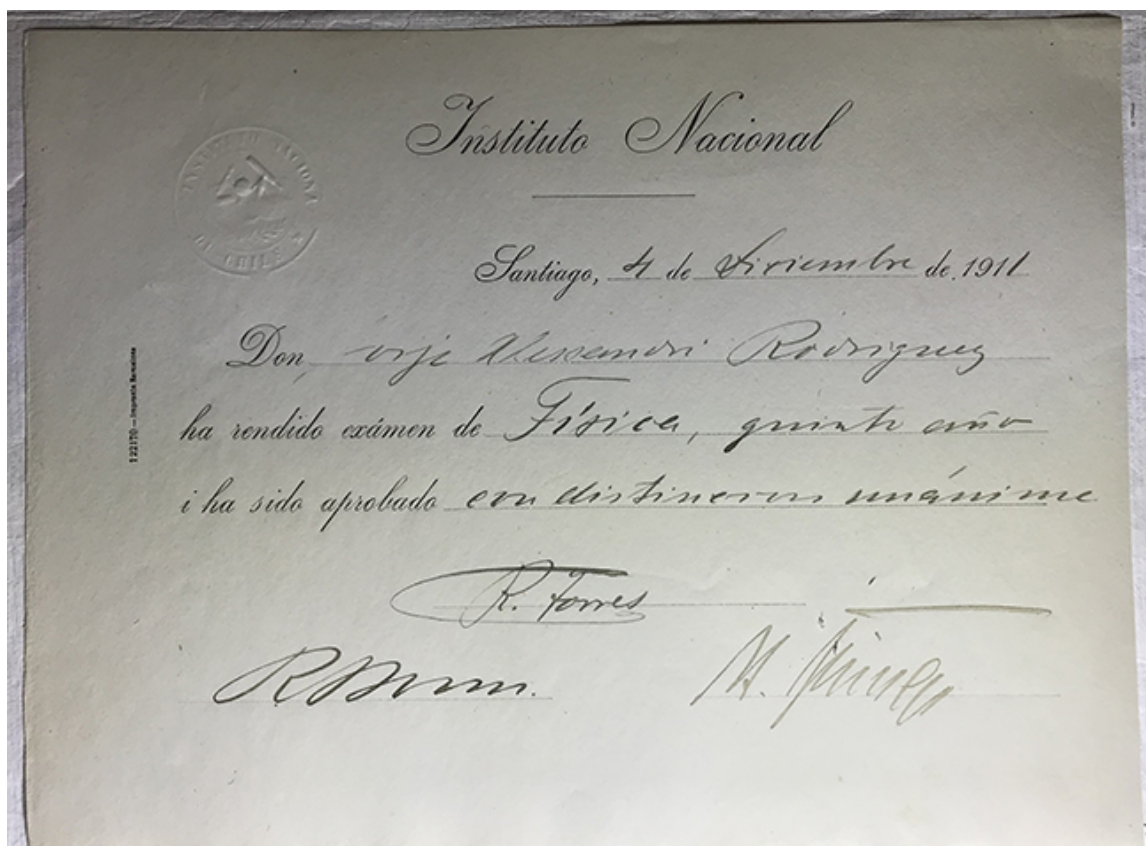 INSTITUTO NACIONAL
DE CHILE
Instituto Nacional
Santiago, 4 de Diciembre de 1911
Don, Alessandri Rodriguez
ha rendido exámen de Física, quinto año
i ha sido aprobado con distincion unánime
122170—Imprenta Barcelona
R. Torres